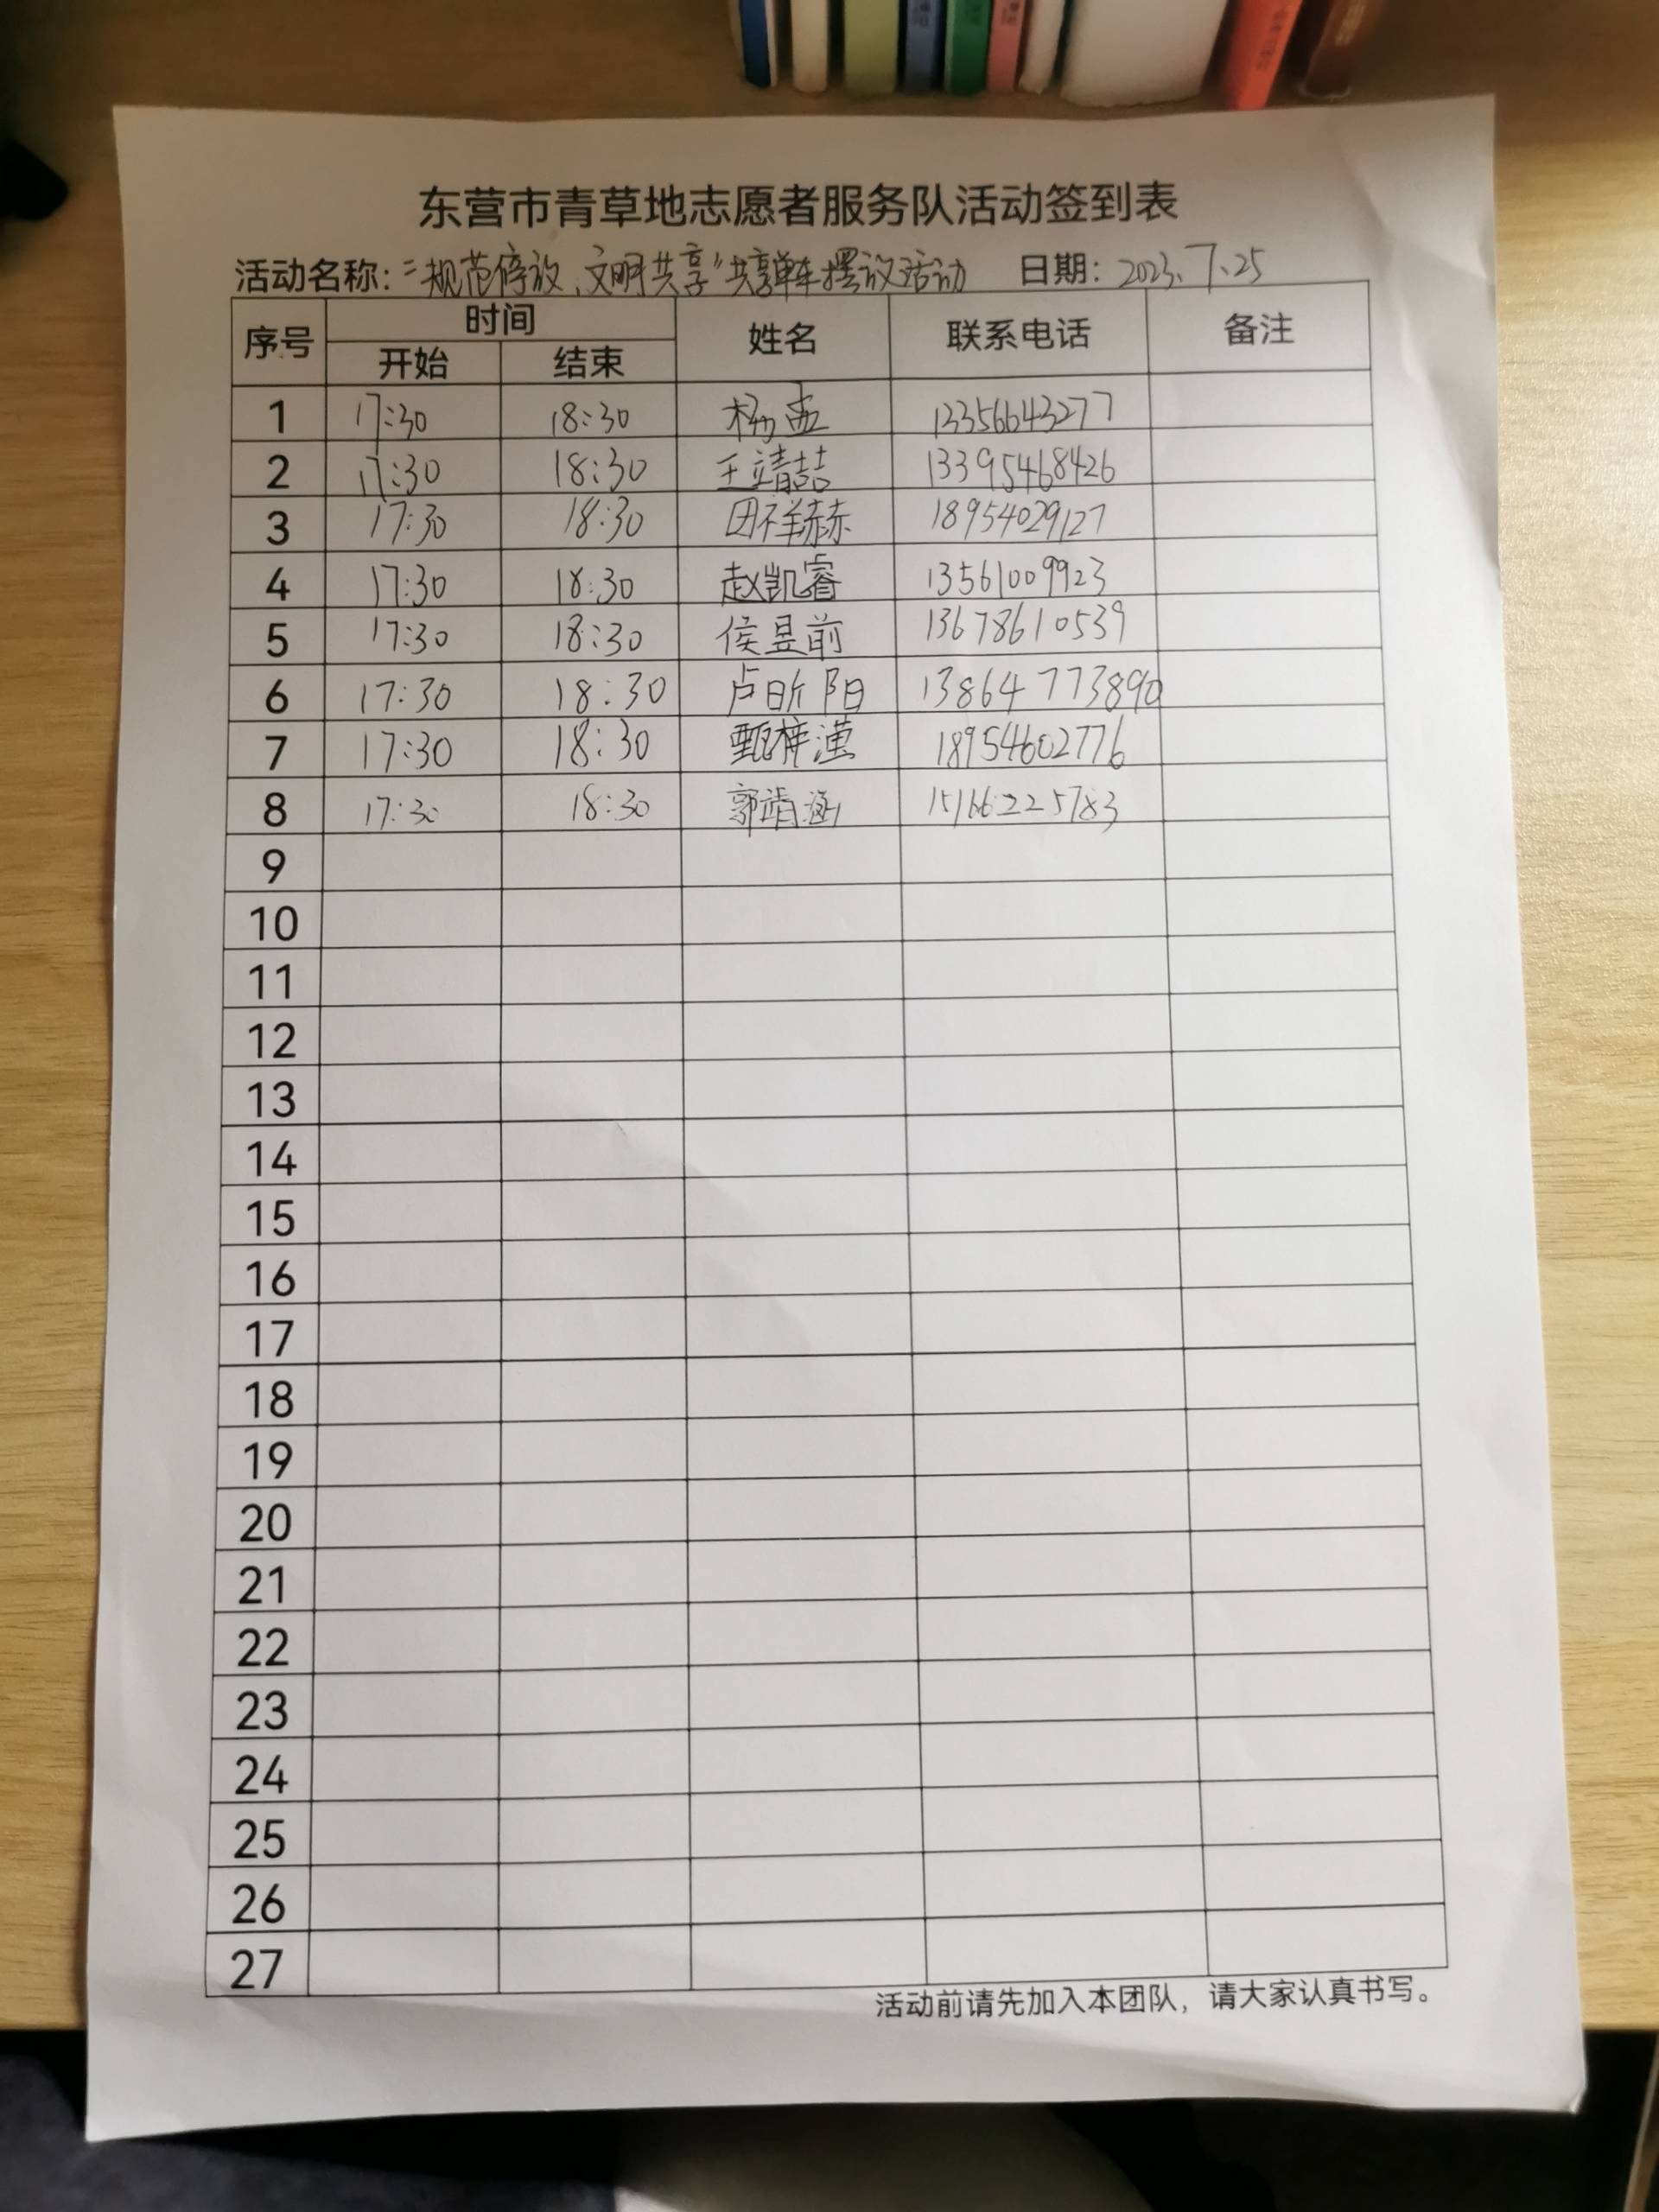 东营市青草地志愿者服务队活动签到表
活动名称: “规范停放、文明共享”共享单车摆放活动 日期: 2023.7.25
序号 时间 姓名 联系电话 备注
开始 结束
1 17:30 18:30 杨孟 13356643277
2 17:30 18:30 王靖喆 13395468426
3 17:30 18:30 田祥赫 18954029127
4 17:30 18:30 赵凯睿 13561009923
5 17:30 18:30 侯昱前 13678610539
6 17:30 18:30 卢昕阳 13864773890
7 17:30 18:30 甄梓漢 18954602776
8 17:30 18:30 郭靖涵 15166225783
9
10
11
12
13
14
15
16
17
18
19
20
21
22
23
24
25
26
27
活动前请先加入本团队，请大家认真书写。